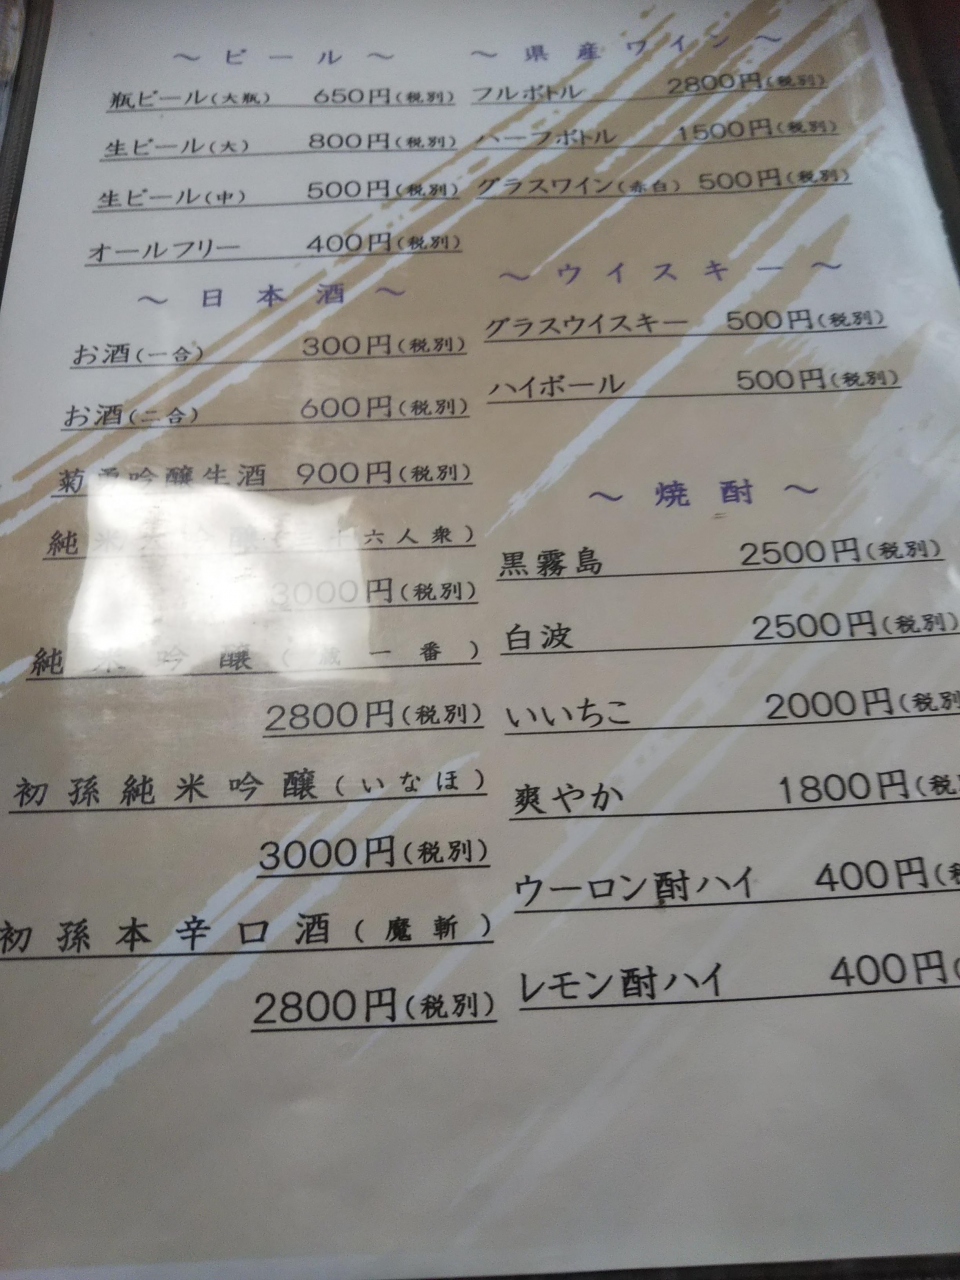 ～ビール～
瓶ビール(大瓶) 650円(税別)
生ビール(大) 800円(税別)
生ビール(中) 500円(税別)
オールフリー 400円(税別)
～日本酒～
お酒(一合) 300円(税別)
お酒(二合) 600円(税別)
菊勇吟醸生酒 900円(税別)
純米 醸 六人衆)
3000円(税別)
純米吟醸(蔵一番)
2800円(税別)
初孫純米吟醸(いなほ)
3000円(税別)
初孫本辛口酒(魔斬)
2800円(税別)
～県産ワイン～
フルボトル 2800円(税別)
ハーフボトル 1500円(税別)
グラスワイン(赤白) 500円(税別)
～ウイスキー～
グラスウイスキー 500円(税別)
ハイボール 500円(税別)
～焼酎～
黒霧島 2500円(税別)
白波 2500円(税別)
いいちこ 2000円(税別
爽やか 1800円(税
ウーロン酎ハイ 400円(税
レモン酎ハイ 400円(